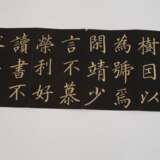 樹囙以
為號焉
閑靖少
言不慕
榮利好
讀書不